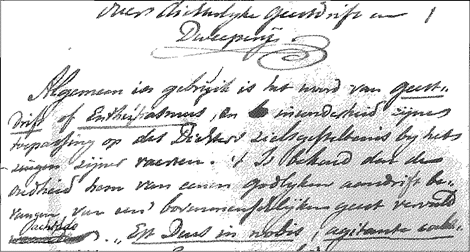 Over Dichterlyke Geestdrift en
Dweepery.
Algemeen in gebruik is het woord van geest-
drift of Enthusiasmus, en in zijne
toepassing op des Dichters zielsgesteltenis by het
zingen zijner vaerzen. 't Is bekend dat de
oudheid hem van eenen godlyken aandrift be-
vangen, van een' bovenmenschlijken geest vervuld
achtte. „Est Deus in nobis, agitante